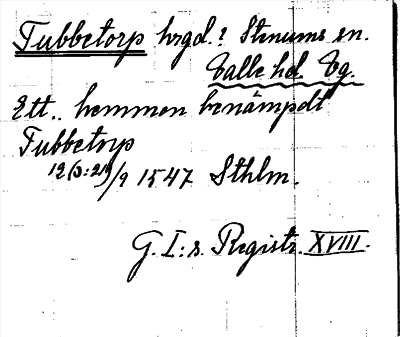 Tubbetorp hrgd.? Stenums sn.
Valle hd. Vg.
Ett.. hemman benämpdt
Tubbetorp
12(s:21)/9 1547 Sthlm.
G. I:s. Registr. XVIII.